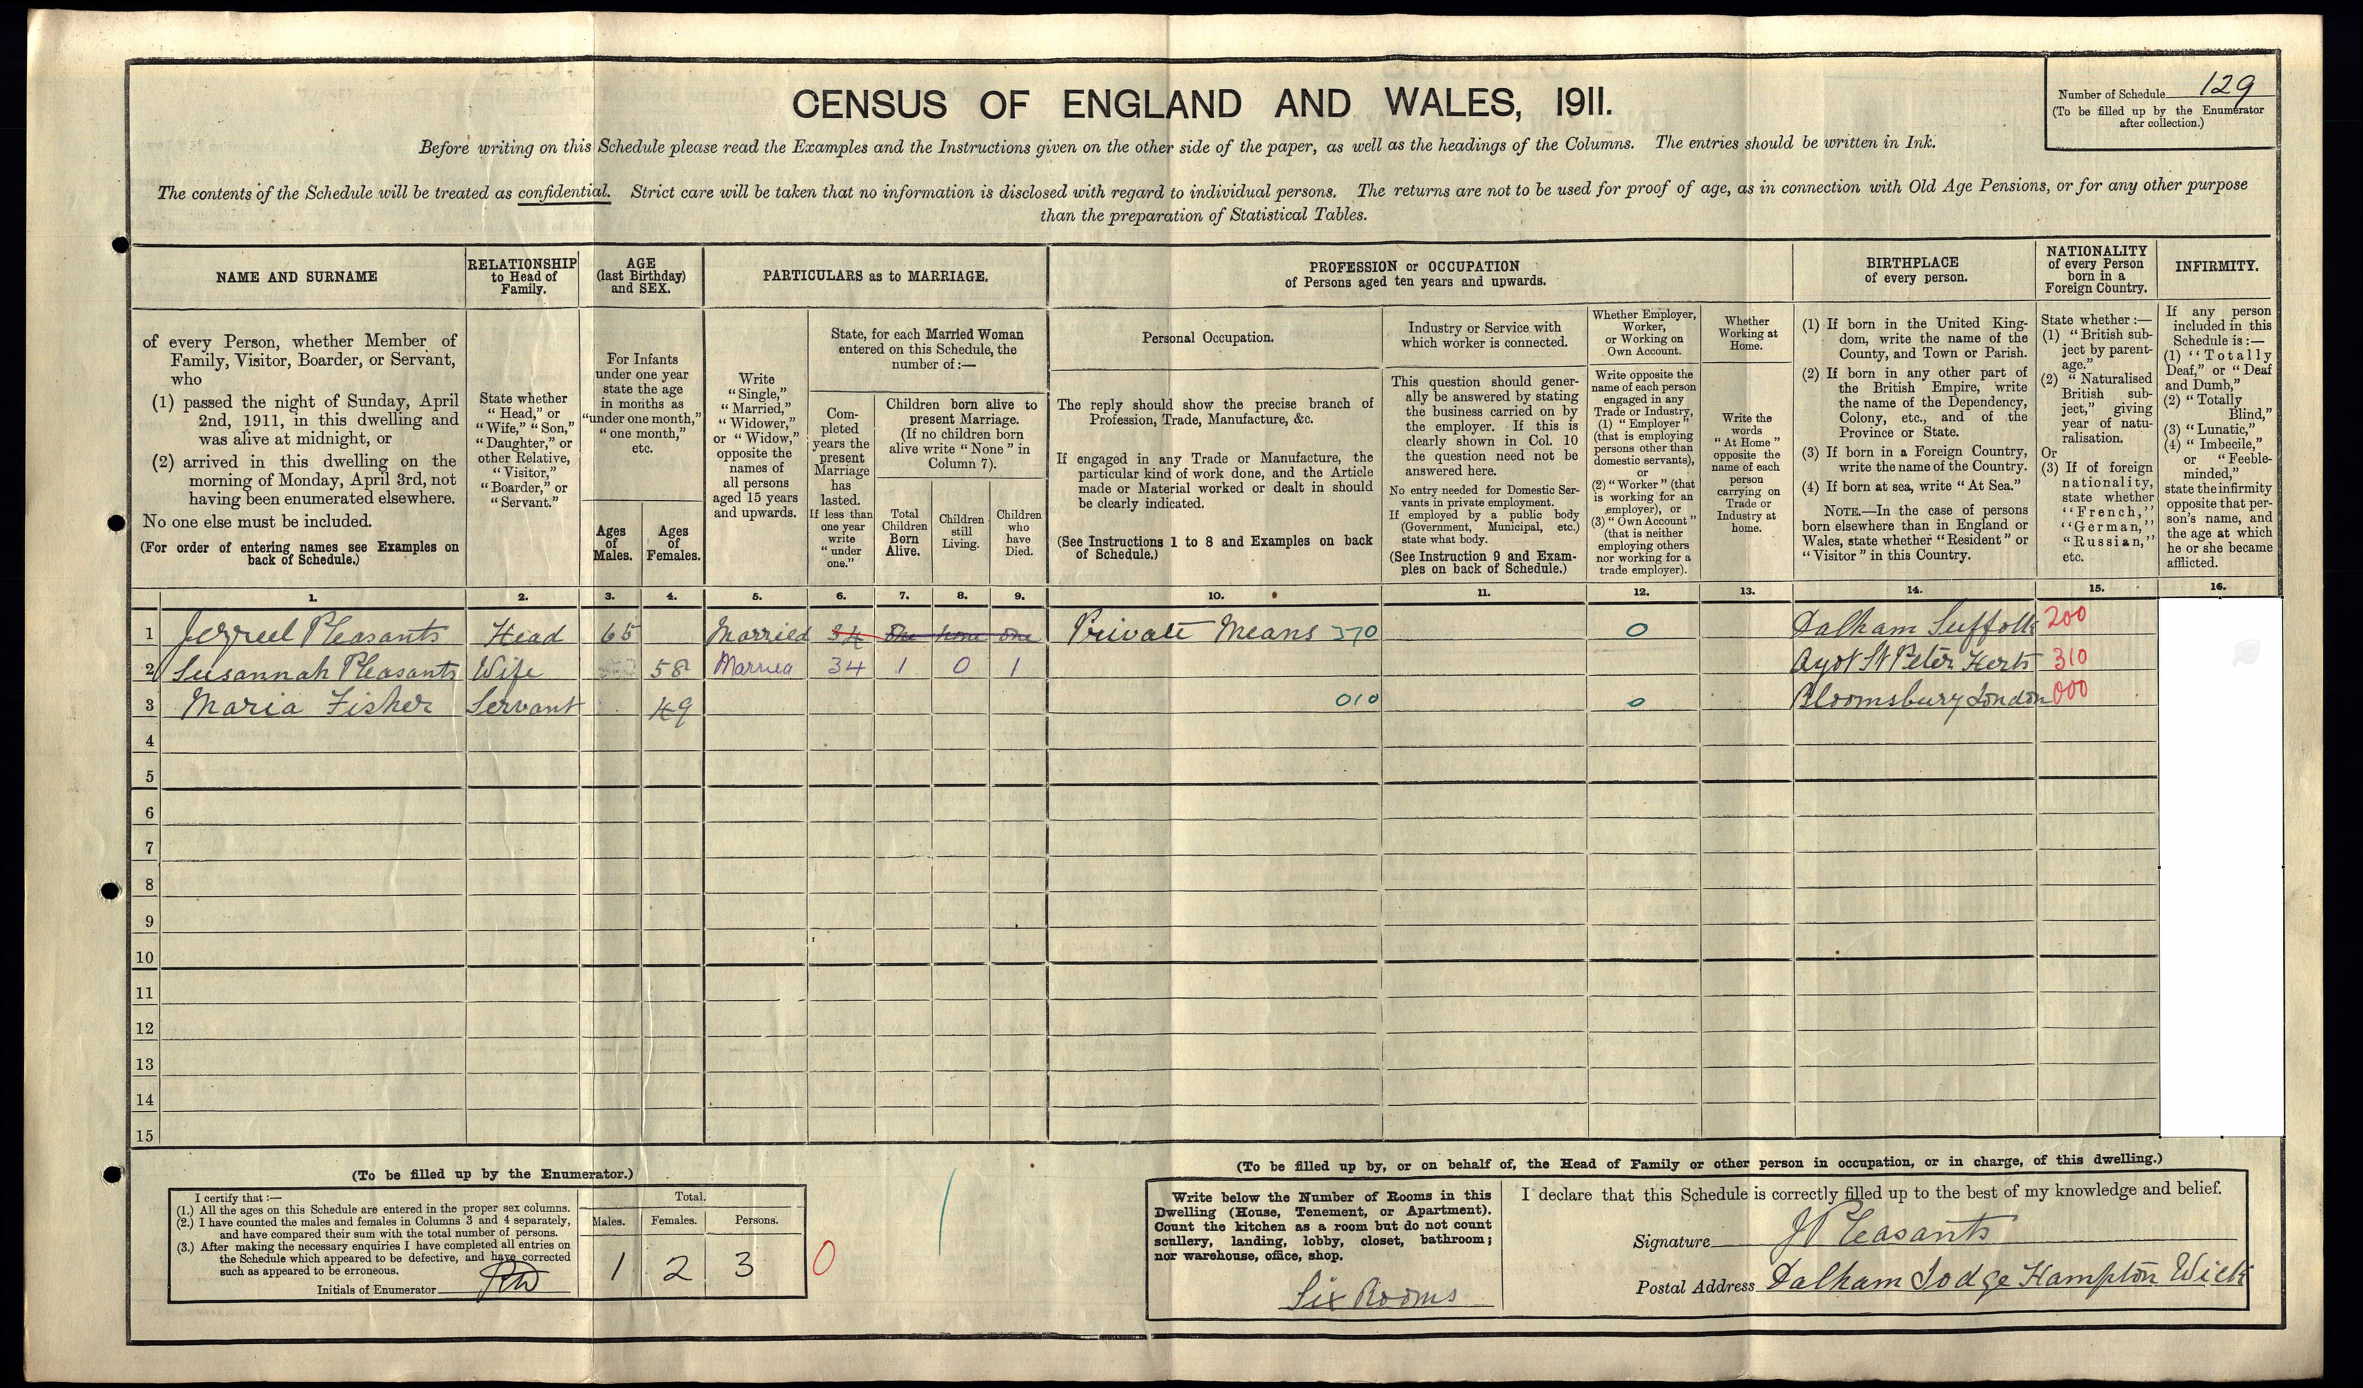 CENSUS OF ENGLAND AND WALES, 1911.
Number of Schedule 129
(To be filled up by the Enumerator
after collection.)
Before writing on this Schedule please read the Examples and the Instructions given on the other side of the paper, as well as the headings of the Columns. The entries should be written in Ink.
The contents of the Schedule will be treated as confidential. Strict care will be taken that no information is disclosed with regard to individual persons. The returns are not to be used for proof of age, as in connection with Old Age Pensions, or for any other purpose
than the preparation of Statistical Tables.
NAME AND SURNAME
of every Person, whether Member of
Family, Visitor, Boarder, or Servant,
who
(1) passed the night of Sunday, April
2nd, 1911, in this dwelling and
was alive at midnight, or
(2) arrived in this dwelling on the
morning of Monday, April 3rd, not
having been enumerated elsewhere.
No one else must be included.
(For order of entering names see Examples on
back of Schedule.)
RELATIONSHIP
to Head of
Family.
State whether
"Head," or
"Wife," "Son,"
"Daughter," or
other Relative,
"Visitor,"
"Boarder," or
"Servant."
AGE
(last Birthday)
and SEX.
For Infants
under one year
state the age
in months as
"under one month,"
"one month,"
etc.
Ages
of
Males.
Ages
of
Females.
PARTICULARS as to MARRIAGE.
Write
"Single,"
"Married,"
"Widower,"
or "Widow,"
opposite the
names of
all persons
aged 15 years
and upwards.
State, for each Married Woman
entered on this Schedule, the
number of:—
Com-
pleted
years the
present
Marriage
has
lasted.
If less than
one year
write
"under
one."
Children born alive to
present Marriage.
(If no children born
alive write "None" in
Column 7).
Total
Children
Born
Alive.
Children
still
Living.
Children
who
have
Died.
PROFESSION or OCCUPATION
of Persons aged ten years and upwards.
Personal Occupation.
The reply should show the precise branch of
Profession, Trade, Manufacture, &c.
If engaged in any Trade or Manufacture, the
particular kind of work done, and the Article
made or Material worked or dealt in should
be clearly indicated.
(See Instructions 1 to 8 and Examples on back
of Schedule.)
Industry or Service with
which worker is connected.
This question should gener-
ally be answered by stating
the business carried on by
the employer. If this is
clearly shown in Col. 10
the question need not be
answered here.
No entry needed for Domestic Ser-
vants in private employment.
If employed by a public body
(Government, Municipal, etc.)
state what body.
(See Instruction 9 and Exam-
ples on back of Schedule.)
Whether Employer,
Worker,
or Working on
Own Account.
Write opposite the
name of each person
engaged in any
Trade or Industry,
(1) "Employer"
(that is employing
persons other than
domestic servants),
or
(2) "Worker" (that
is working for an
employer), or
(3) "Own Account"
(that is neither
employing others
nor working for a
trade employer).
Whether
Working at
Home.
Write the
words
"At Home"
opposite the
name of each
person
carrying on
Trade or
Industry at
home.
BIRTHPLACE
of every person.
(1) If born in the United King-
dom, write the name of the
County, and Town or Parish.
(2) If born in any other part of
the British Empire, write
the name of the Dependency,
Colony, etc., and of the
Province or State.
(3) If born in a Foreign Country,
write the name of the Country.
(4) If born at sea, write "At Sea."
NOTE.—In the case of persons
born elsewhere than in England or
Wales, state whether "Resident" or
"Visitor" in this Country.
NATIONALITY
of every Person
born in a
Foreign Country.
State whether:—
(1) "British sub-
ject by parent-
age."
(2) "Naturalised
British sub-
ject," giving
year of natu-
ralisation.
Or
(3) If of foreign
nationality,
state whether
"French,"
"German,"
"Russian,"
etc.
INFIRMITY.
If any person
included in this
Schedule is:—
(1) "Totally
Deaf," or "Deaf
and Dumb,"
(2) "Totally
Blind,"
(3) "Lunatic,"
(4) "Imbecile,"
or "Feeble-
minded,"
state the infirmity
opposite that per-
son's name, and
the age at which
he or she became
afflicted.
1. 2. 3. 4. 5. 6. 7. 8. 9. 10. 11. 12. 13. 14. 15. 16.
1 Jezreel Pleasants Head 65 Married 34 One none one Private Means 370 0 Dalham Suffolk 200
2 Susannah Pleasants Wife 58 Married 34 1 0 1 Ayot St Peter Herts 310
3 Maria Fisher Servant 49 010 0 Bloomsbury London 000
4
5
6
7
8
9
10
11
12
13
14
15
(To be filled up by the Enumerator.)
I certify that:—
(1.) All the ages on this Schedule are entered in the proper sex columns.
(2.) I have counted the males and females in Columns 3 and 4 separately,
and have compared their sum with the total number of persons.
(3.) After making the necessary enquiries I have completed all entries on
the Schedule which appeared to be defective, and have corrected
such as appeared to be erroneous.
Initials of Enumerator
Total.
Males. Females. Persons.
1 2 3 0
(To be filled up by, or on behalf of, the Head of Family or other person in occupation, or in charge, of this dwelling.)
Write below the Number of Rooms in this
Dwelling (House, Tenement, or Apartment).
Count the kitchen as a room but do not count
scullery, landing, lobby, closet, bathroom;
nor warehouse, office, shop.
Six Rooms
I declare that this Schedule is correctly filled up to the best of my knowledge and belief.
Signature J Pleasants
Postal Address Dalham Lodge Hampton Wick